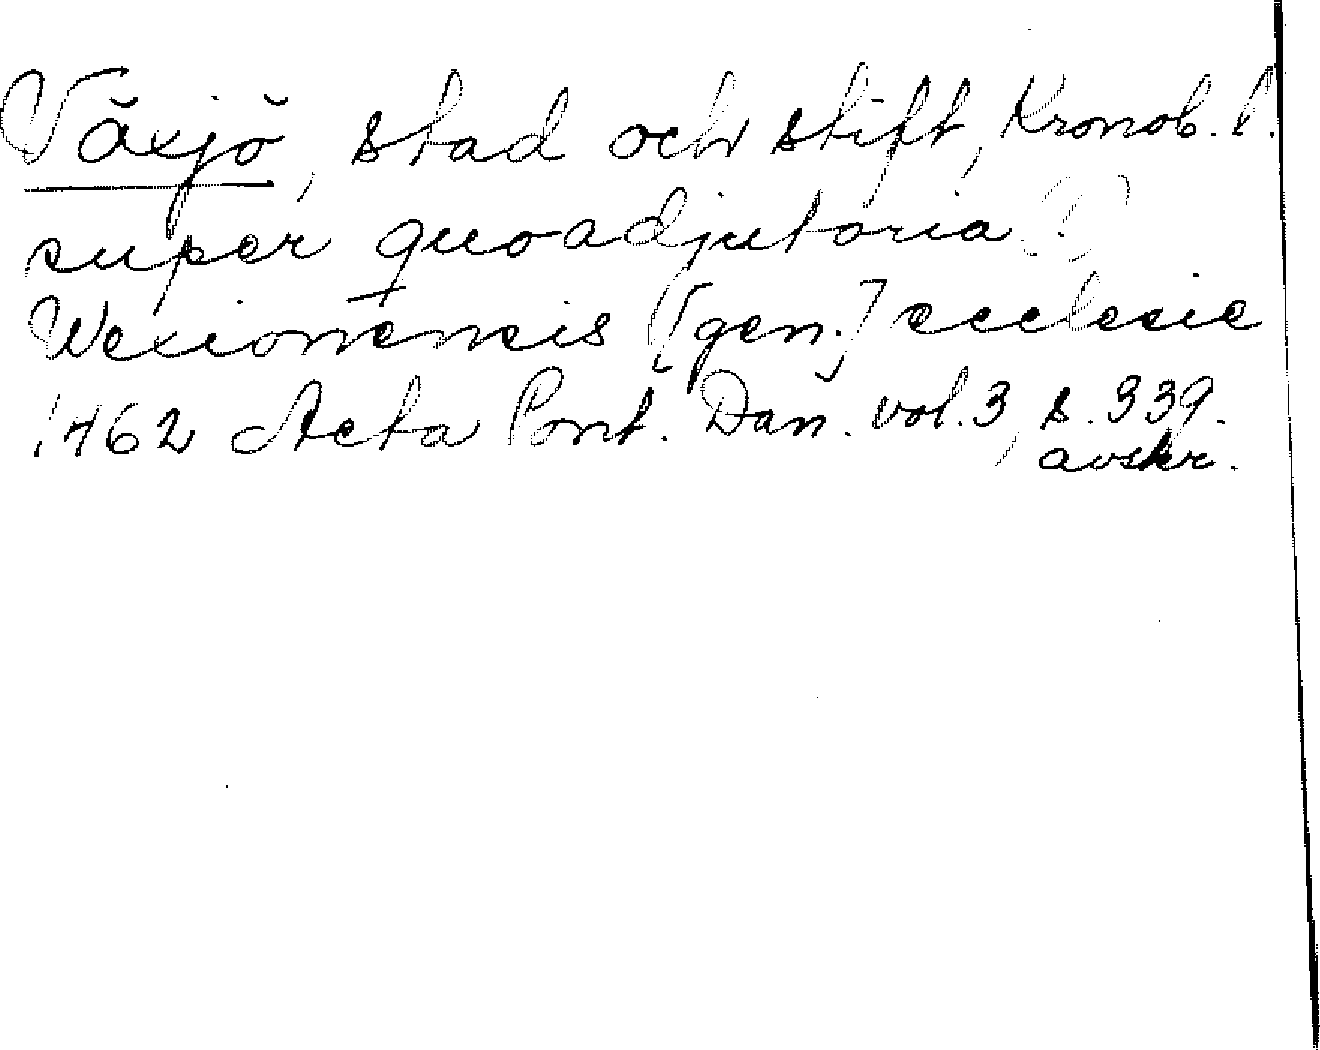 Växjö, stad och stift, Kronob. l.
super quoadjutoria (?)
Wexionensis [gen.] ecclesie
1462 Acta Pont. Dan. vol. 3, s. 339.
avskr.